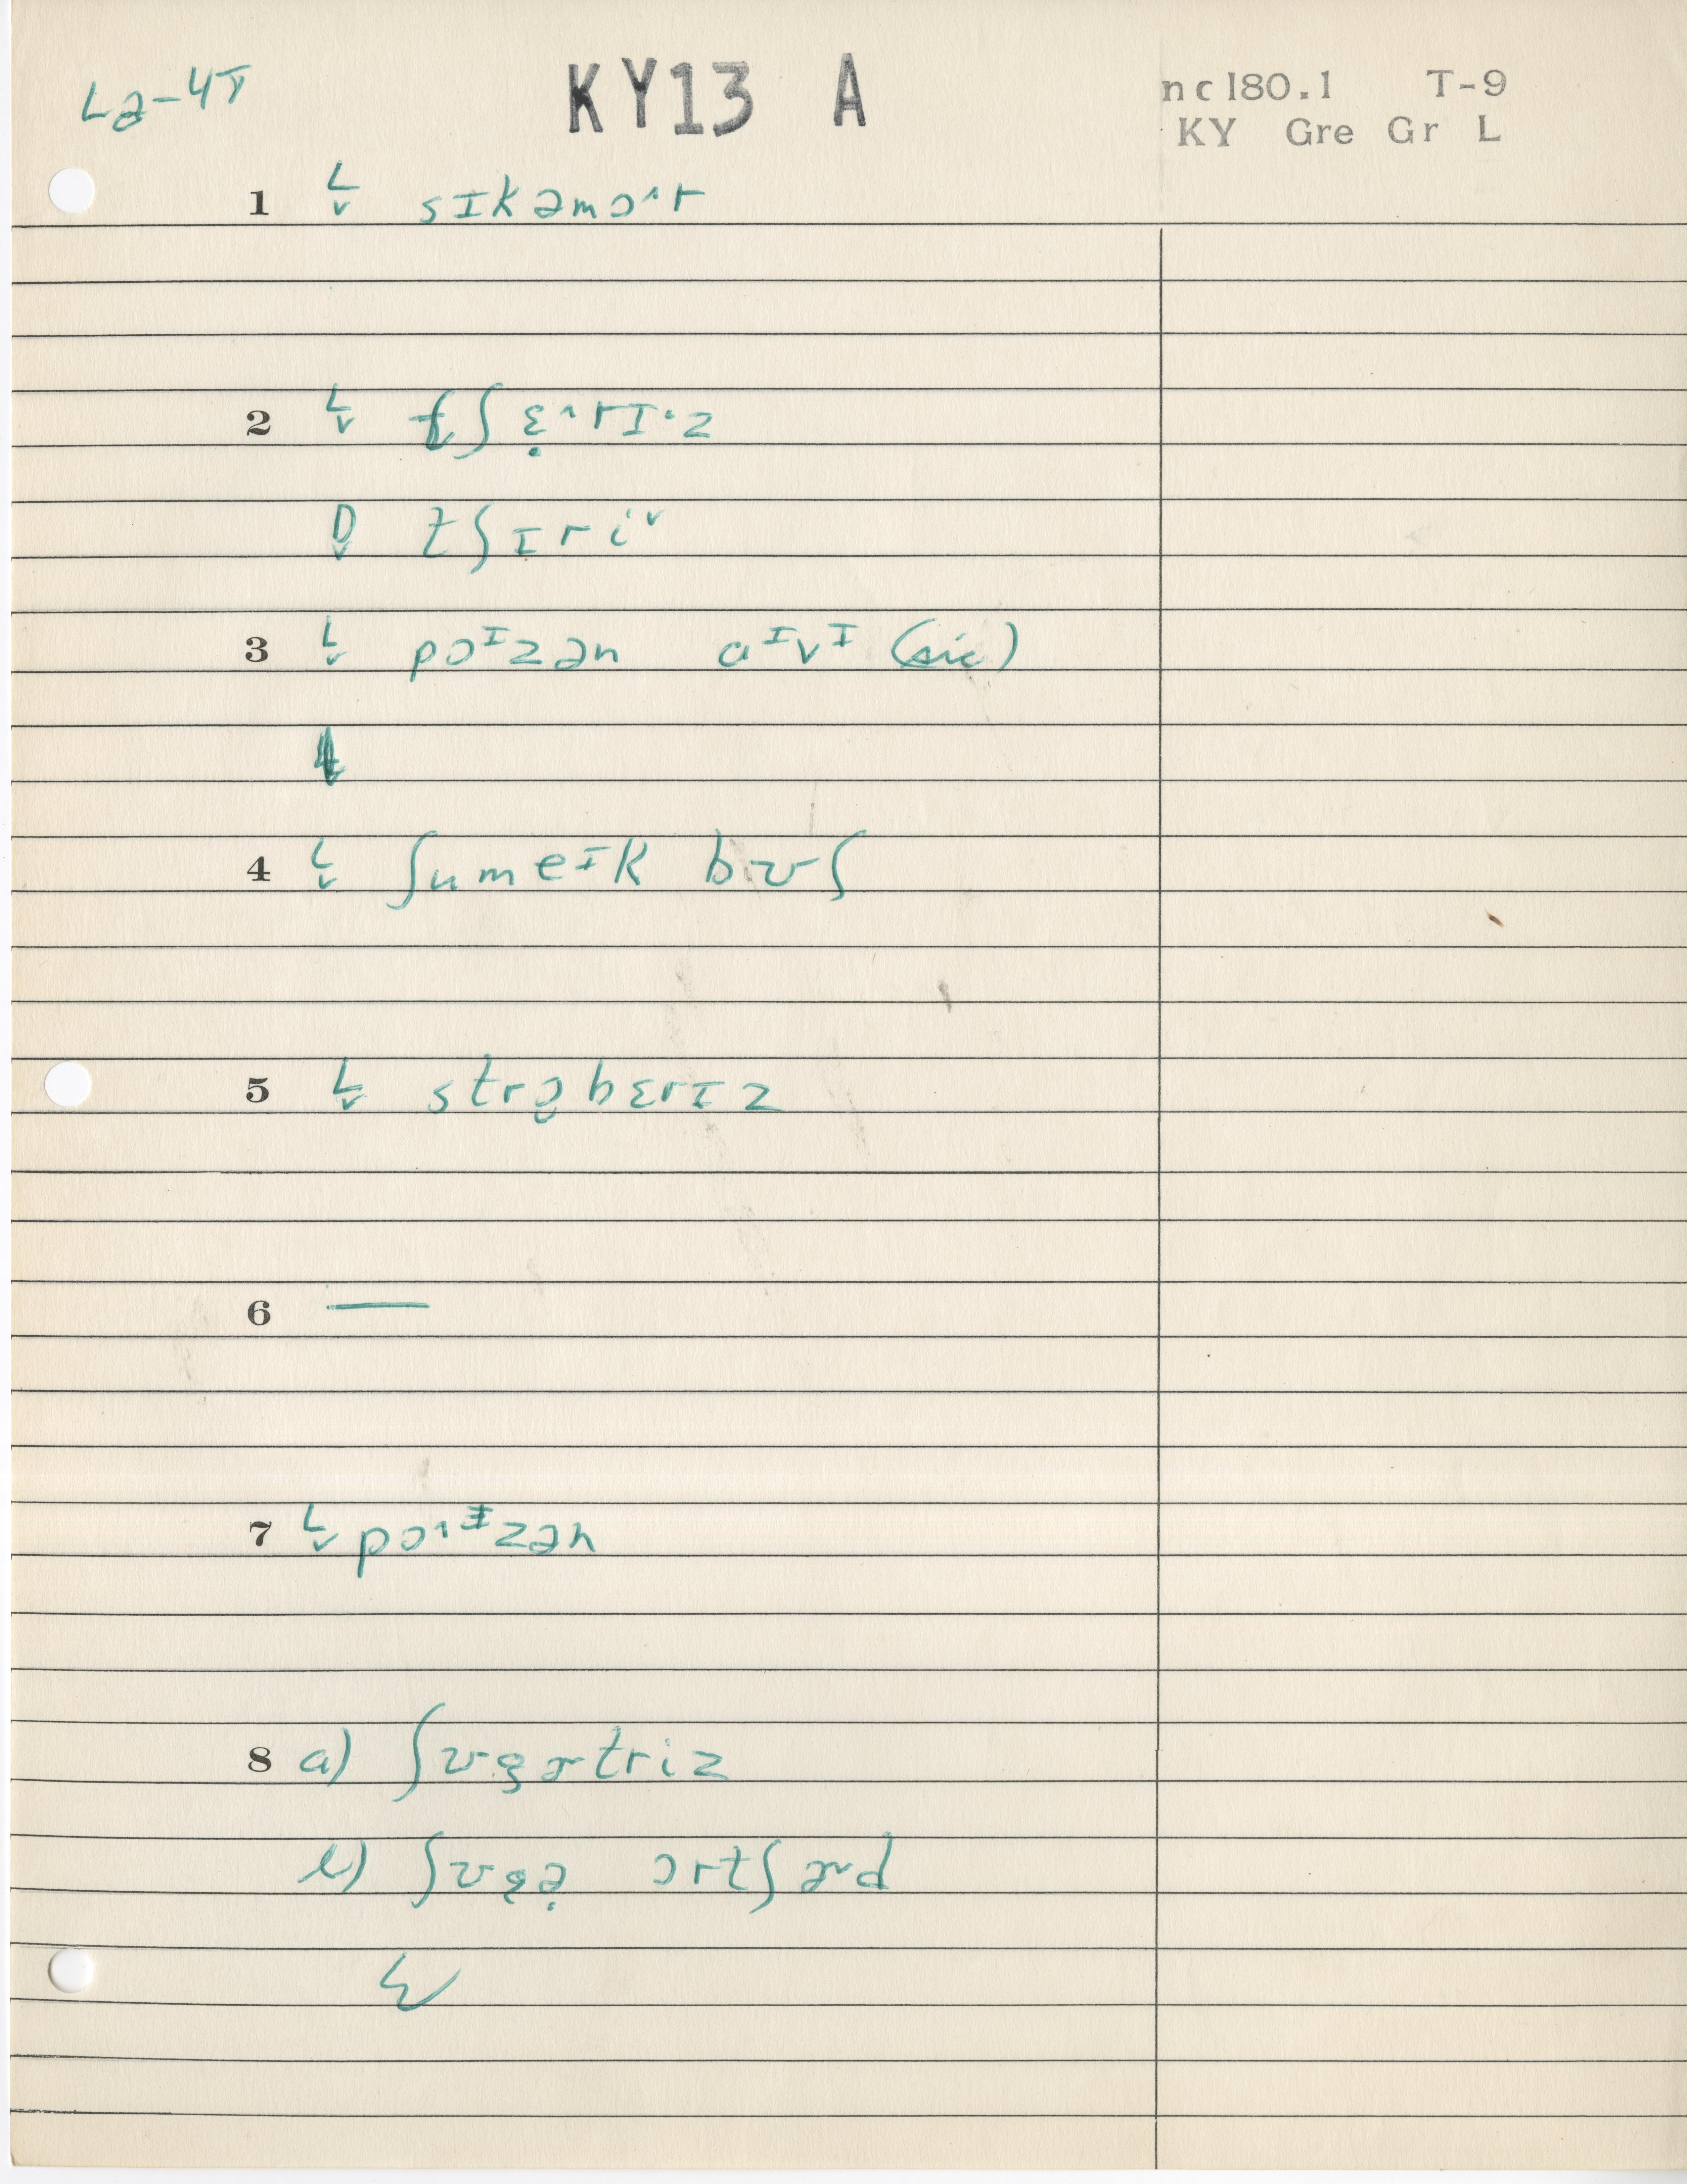 La-4T
KY13 A
nc180.1 T-9
KY Gre Gr L
1 L sɪkəmɔ˄r
2 L tʃɛ̣˄rɪ˔z
D tʃɪri˅
3 L pɔᶦzən aᶦvᶦ (sic)
4 L ʃumeᶦk bʊʃ
5 L strɔ̨bɛrɪz
6 —
7 L pɔ˄ᶦzən
8 a) ʃʊgɚtriz
b) ʃʊgə̣ ɔrtʃɚd